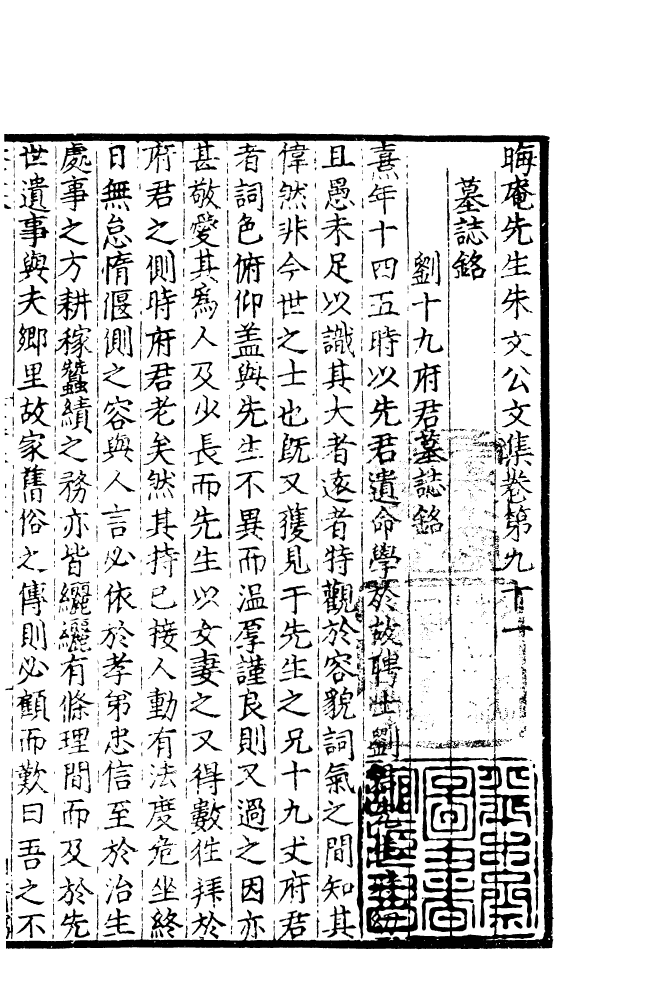 晦庵先生朱文公文集卷第九十一
墓誌銘
劉十九府君墓誌銘
熹年十四五時以先君遺命學於故聘士劉先生先生幼
且愚未足以識其大者遠者特觀於容貌詞氣之間知其
偉然非今世之士也旣又獲見于先生之兄十九丈府君
者詞色俯仰盖與先生不異而温厚謹良則又過之因亦
甚敬愛其爲人及少長而先生以女妻之又得數徃拜於
府君之側時府君老矣然其持已接人動有法度危坐終
日無怠惰偃側之容與人言必依於孝弟忠信至於治生
處事之方耕稼蠶績之務亦皆纚纚有條理間而及於先
世遺事與夫鄉里故家舊俗之傳則必顧而歎曰吾之不